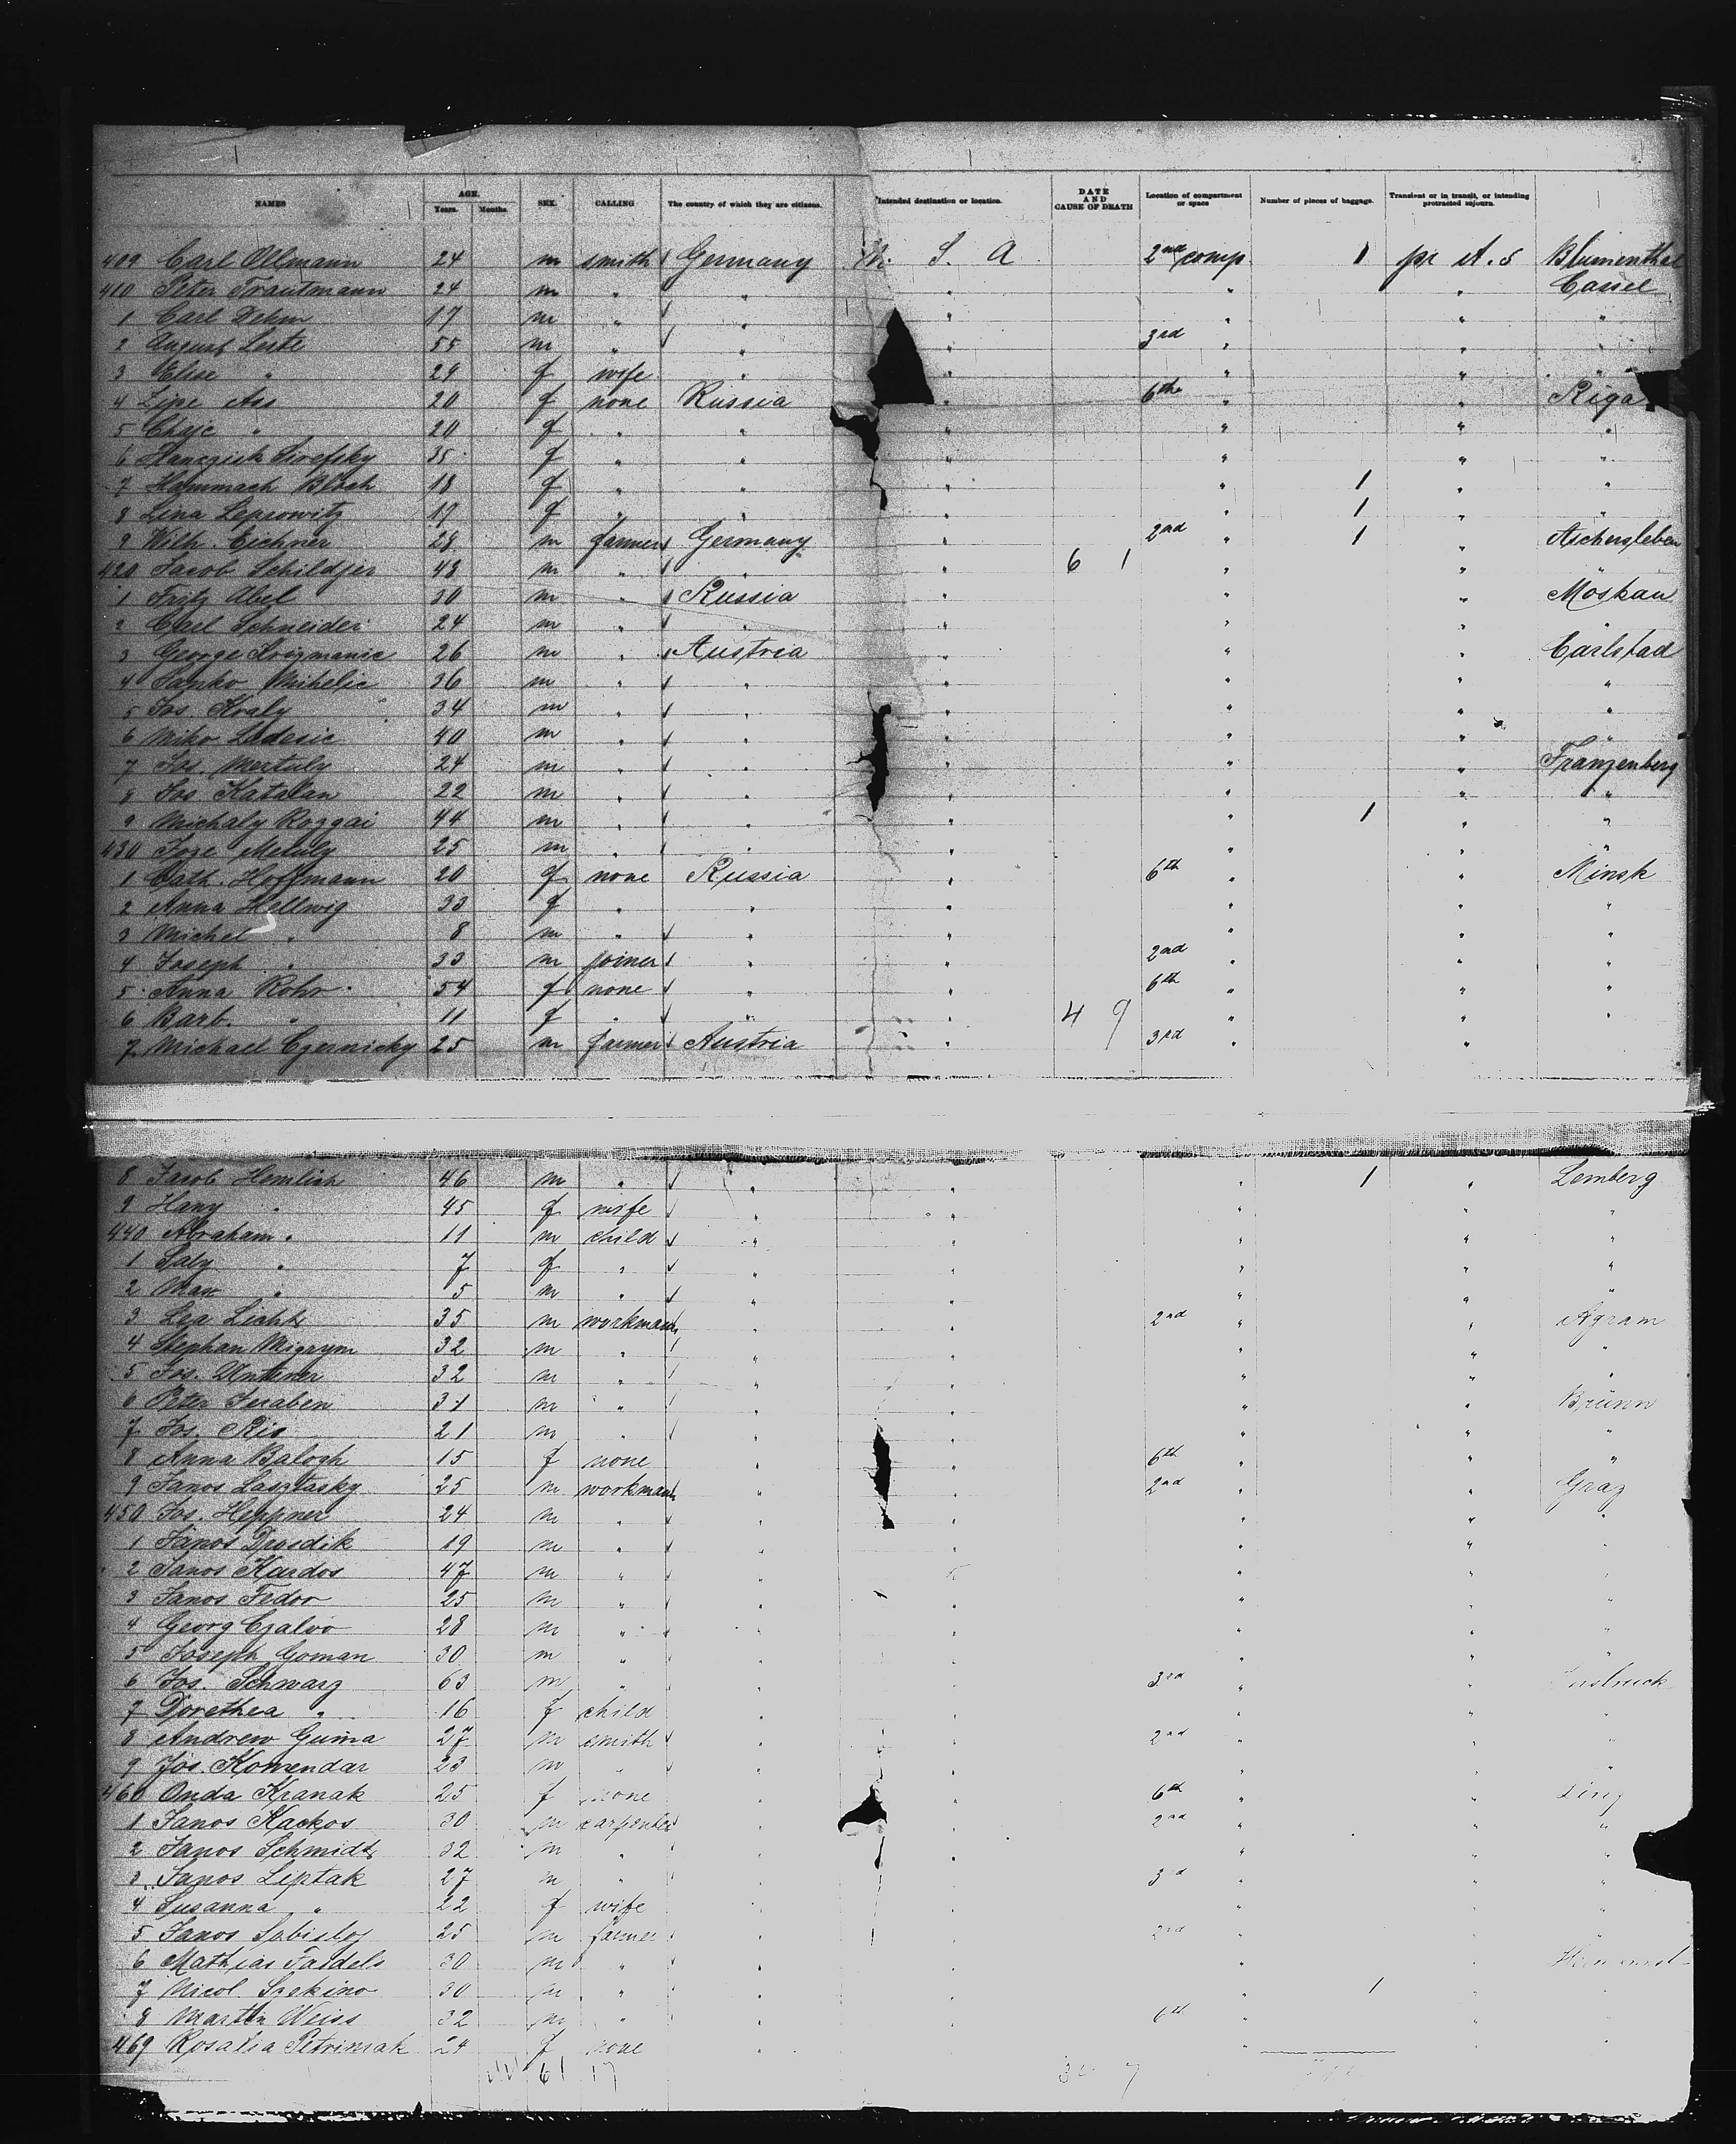 NAMES AGE. Years. Months. SEX. CALLING The country of which they are citizens. Intended destination or location. DATE AND CAUSE OF DEATH Location of compartment or space Number of pieces of baggage. Transient or in transit, or intending protracted sojourn.
409 Carl Ollmann 24 m smith Germany S. A 2nd comp. 1 pr A. S Blumenthal
410 Peter Trautmann 24 m " " " " " Cassel
1 Carl Dehm 17 m " " " " " "
2 August Leste 55 m " " " 3rd " " "
3 Elise " 29 f wife " " " " "
4 Zine Ass 20 f none Russia " 6th " " Riga
5 Chaje " 20 f " " " " " "
6 35 f " " " " " "
7 Hammach Bloch 18 f " " " " 1 " "
8 Lina Leprowitz 19 f " " " " 1 " "
9 Wilh. Eichner 28 m farmer Germany " 2nd " 1 " Aschersleben
420 Jacob Schildjer 48 m " " " 6 1 " "
1 Fritz Abel 30 m " Russia " " " Moskau
2 Carl Schneider 24 m " " " " " "
3 George Krizmanic 26 m " Austria " " " Carlstad
4 Janko Mihelic 36 m " " " " " "
5 Jos. Kraly 34 m " " " " " "
6 Miko Ladesic 40 m " " " " " "
7 Jos. Mertuly 24 m " " " " " Franzenberg
8 Jos Katalan 22 m " " " " " "
9 Michaly Roggai 44 m " " " " 1 " "
430 Joze Meluz 25 m " " " " " "
1 Cath. Hoffmann 20 f none Russia " 6th " " Minsk
2 Anna Hellwig 33 f " " " " " "
3 Michel " 8 m " " " " " "
4 Joseph " 33 m joiner " " 2nd " " "
5 Anna Rohr 54 f none " " 6th " " "
6 Barb. " 11 f " " " 4 9 " " "
7 Michael Czernicky 25 m farmer Austria " 3rd " "
8 Jacob Hemlich 46 m " " " " 1 " Lemberg
9 Hany " 45 f wife " " " " "
440 Abraham " 11 m child " " " " "
1 Saly " 7 f " " " " " "
2 Max " 5 m " " " " " "
3 Lea Licht 35 m workman " " 2nd " " Agram
4 Stephan Migrym 32 m " " " " " "
5 Jos. Untener 32 m " " " " " "
6 Peter Juraben 31 m " " " " " Brünn
7 Jos. Ris 21 m " " " " "
8 Anna Balogh 15 f none " " 6th " " "
9 Janos Lasztasky 25 m workman " " 2nd " " Graz
450 Jos. Heppner 24 m " " " " " "
1 Janos Drosdik 19 m " " " " " "
2 Janos Kardos 47 m " " " " " "
3 Janos Fedor 25 m " " " " " "
4 Georg Czalvo 28 m " " " " " "
5 Joseph Goman 30 m " " " " " "
6 Jos. Schwarz 63 m " " " 3rd " " Insbruck
7 Dorethea " 16 f child " " " " "
8 Andrew Guma 27 m smith " " 2nd " " "
9 Jos. Komendar 23 m " " " " " "
460 Onda Kranak 25 f none " " 6th " " Linz
1 Janos Kackos 30 m carpenter " " 2nd " " "
2 Janos Schmidt 32 m " " " " " "
3 Janos Liptak 27 m " " " 3rd " " "
4 Susanna " 22 f wife " " " " "
5 Janos 25 m farmer " " 2nd " " "
6 Mathias 30 m " " " " "
7 Nicol. Szekino 30 m " " " " 1 "
8 Martin Weiss 32 m " " " 6th " " "
469 Rosalia Petrimak 24 f none " " " " "
61 17